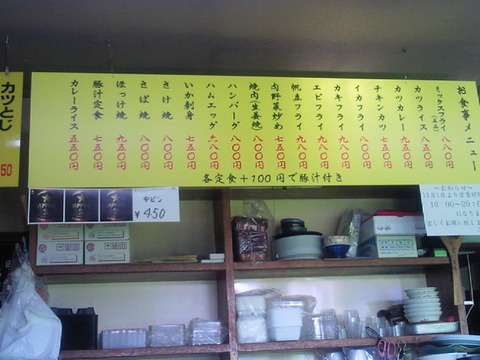 お食事メニュー
ミックスフライ 八八〇円
カツライス 八五〇円
カツカレー 九五〇円
チキンカツ 八〇〇円
イカフライ 八〇〇円
カキフライ 九五〇円
エビフライ 九五〇円
帆立フライ 九五〇円
肉野菜炒め 七五〇円
焼肉(生姜焼) 八〇〇円
ハンバーグ 八〇〇円
ハムエッグ 六八〇円
いか刺身 七五〇円
さけ焼 八〇〇円
さば焼 八〇〇円
ほっけ焼 九五〇円
豚汁定食 七五〇円
カレーライス 五五〇円
各定食+100円で豚汁付き
カツとじ
50
中ビン
¥450
〜お知らせ〜
11月1日より営業時間
18:00〜20:
になりま
宜しくお願い致しま